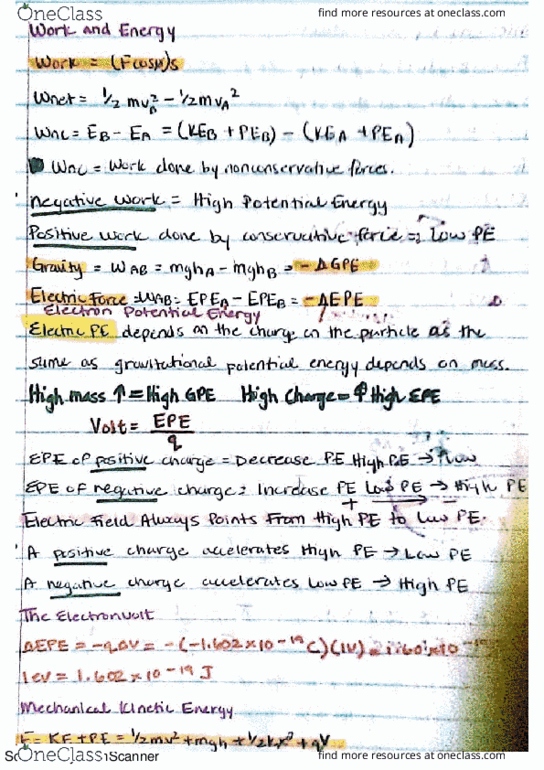 OneClass
find more resources at oneclass.com
Work and Energy
Work = (Fcosθ)s
Wnet = 1/2 mv_B² - 1/2 mv_A²
Wnc = E_B - E_A = (KE_B + PE_B) - (KE_A + PE_A)
Wnc = Work done by nonconservative forces.
negative work = High Potential Energy
Positive work done by conservative force = Low PE
Gravity = W_AB = mgh_A - mgh_B = -ΔGPE
Electric Force = W_AB = EPE_A - EPE_B = -ΔEPE
Electron Potential Energy
Electric PE depends on the charge on the particle as the
same as gravitational potential energy depends on mass.
High mass ↑ = High GPE High Charge = ↑ High EPE
Volt = EPE/q
EPE of positive charge = Decrease PE High PE → Low
EPE of negative charge = Increase PE Low PE → High PE
+ -
Electric Field Always Points From High PE to Low PE.
A positive charge accelerates High PE → Low PE
A negative charge accelerates Low PE → High PE
The Electronvolt
ΔEPE = -qΔV = -(-1.602 x 10^-19 C)(1V)
1eV = 1.602 x 10^-19 J
Mechanical Kinetic Energy
E = KE + PE = 1/2mv² + mgh + 1/2kx² + qV
OneClass
Scanner
find more resources at oneclass.com